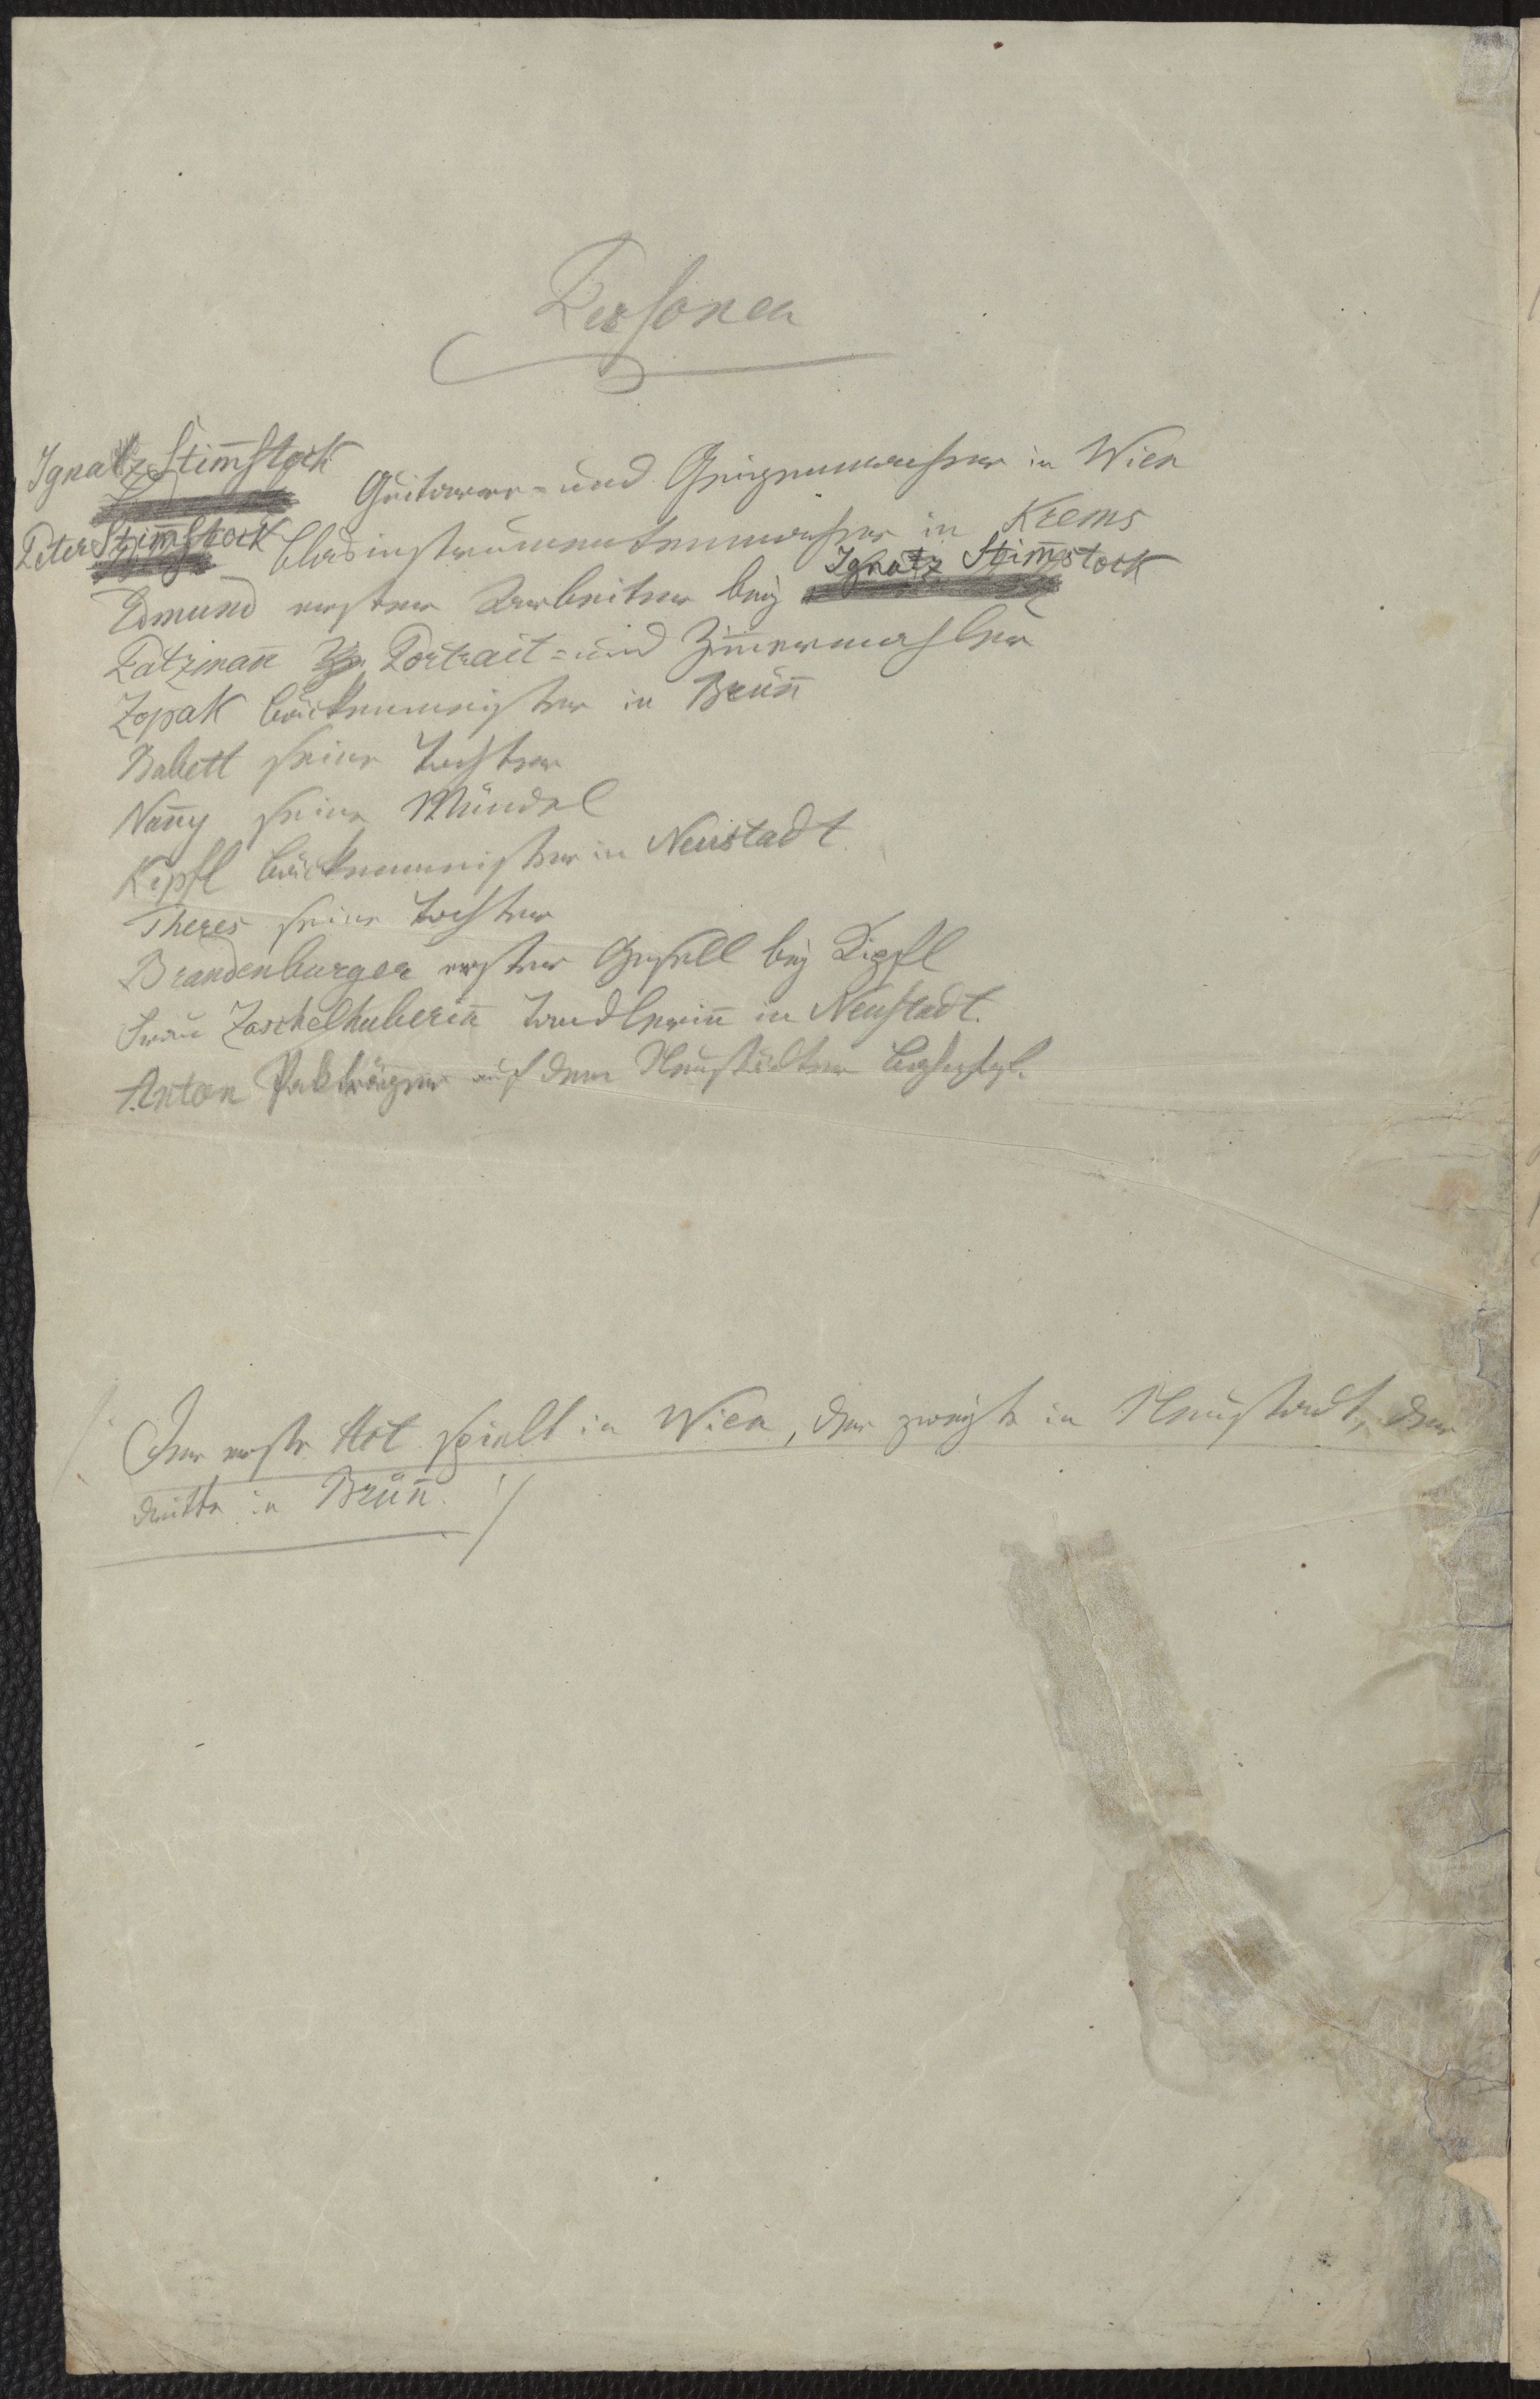 Personen
Ignatz Stim̄stock Guitarre- und Geigenmacher in Wien
Peter Stim̄stock Blasinstrumentenmacher in Krems
Edmund erster Arbeiter bey Ignatz Stim̄stock
Patzman̄ Portrait- und Zim̄ermahler
Zopak Bäckermeister in Brün̄
Babett seine Tochter
Nan̄y seine Mündel
Kipfl Bäckermeister in Neustadt.
Theres seine Tochter
Brandenburger erster Gesell bey Kipfl
Frau Zaschelhuberin̄ Tandlerin̄ in Neustadt.
Anton Packträger auf dem Neustädter Bahnhof.
/: Der erste Act spielt in Wien, der zweyte in Neustadt, der
dritte in Brün̄. :/